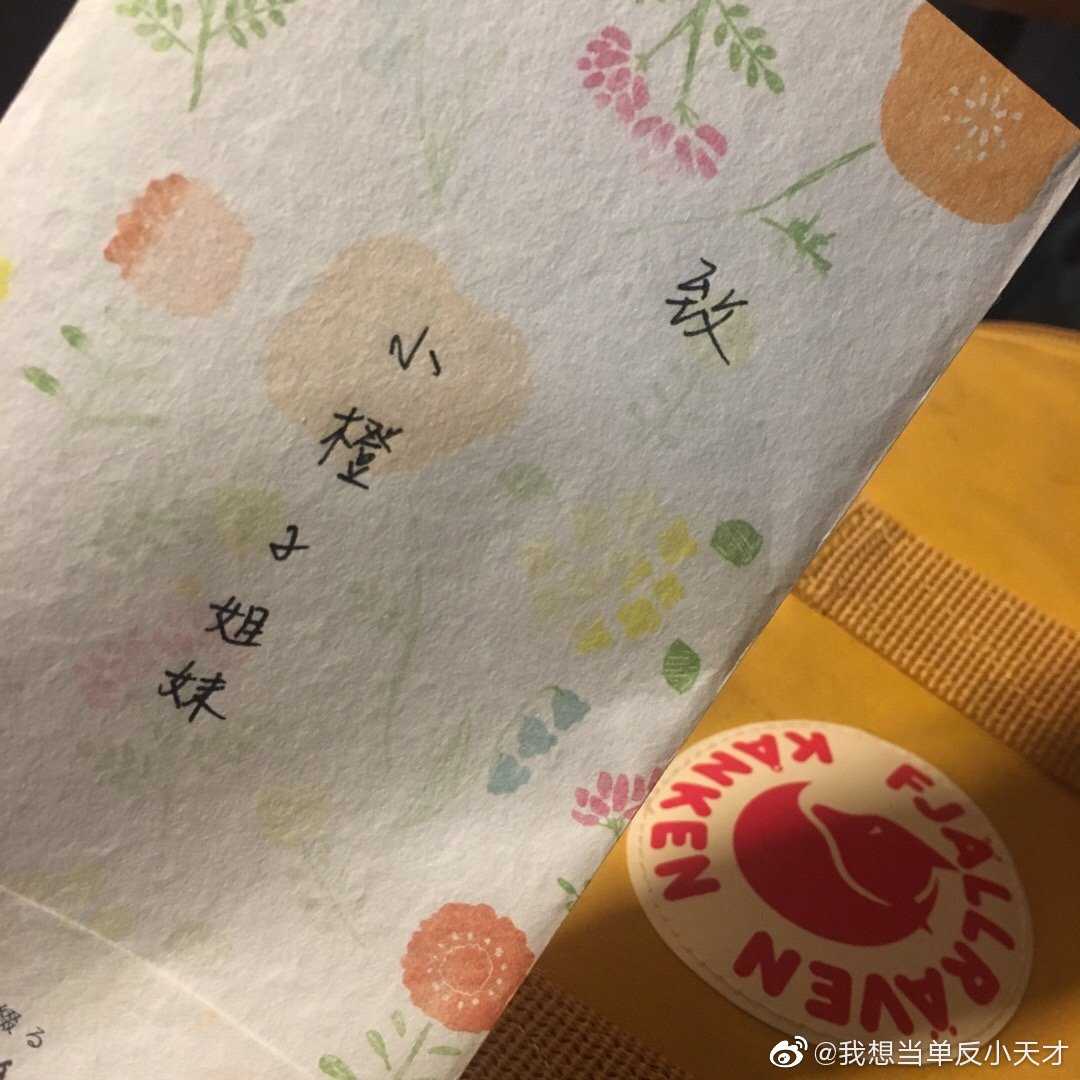 致
小橙子姐妹
FJÄLLRÄVEN
KÅNKEN
綴る
@我想当单反小天才